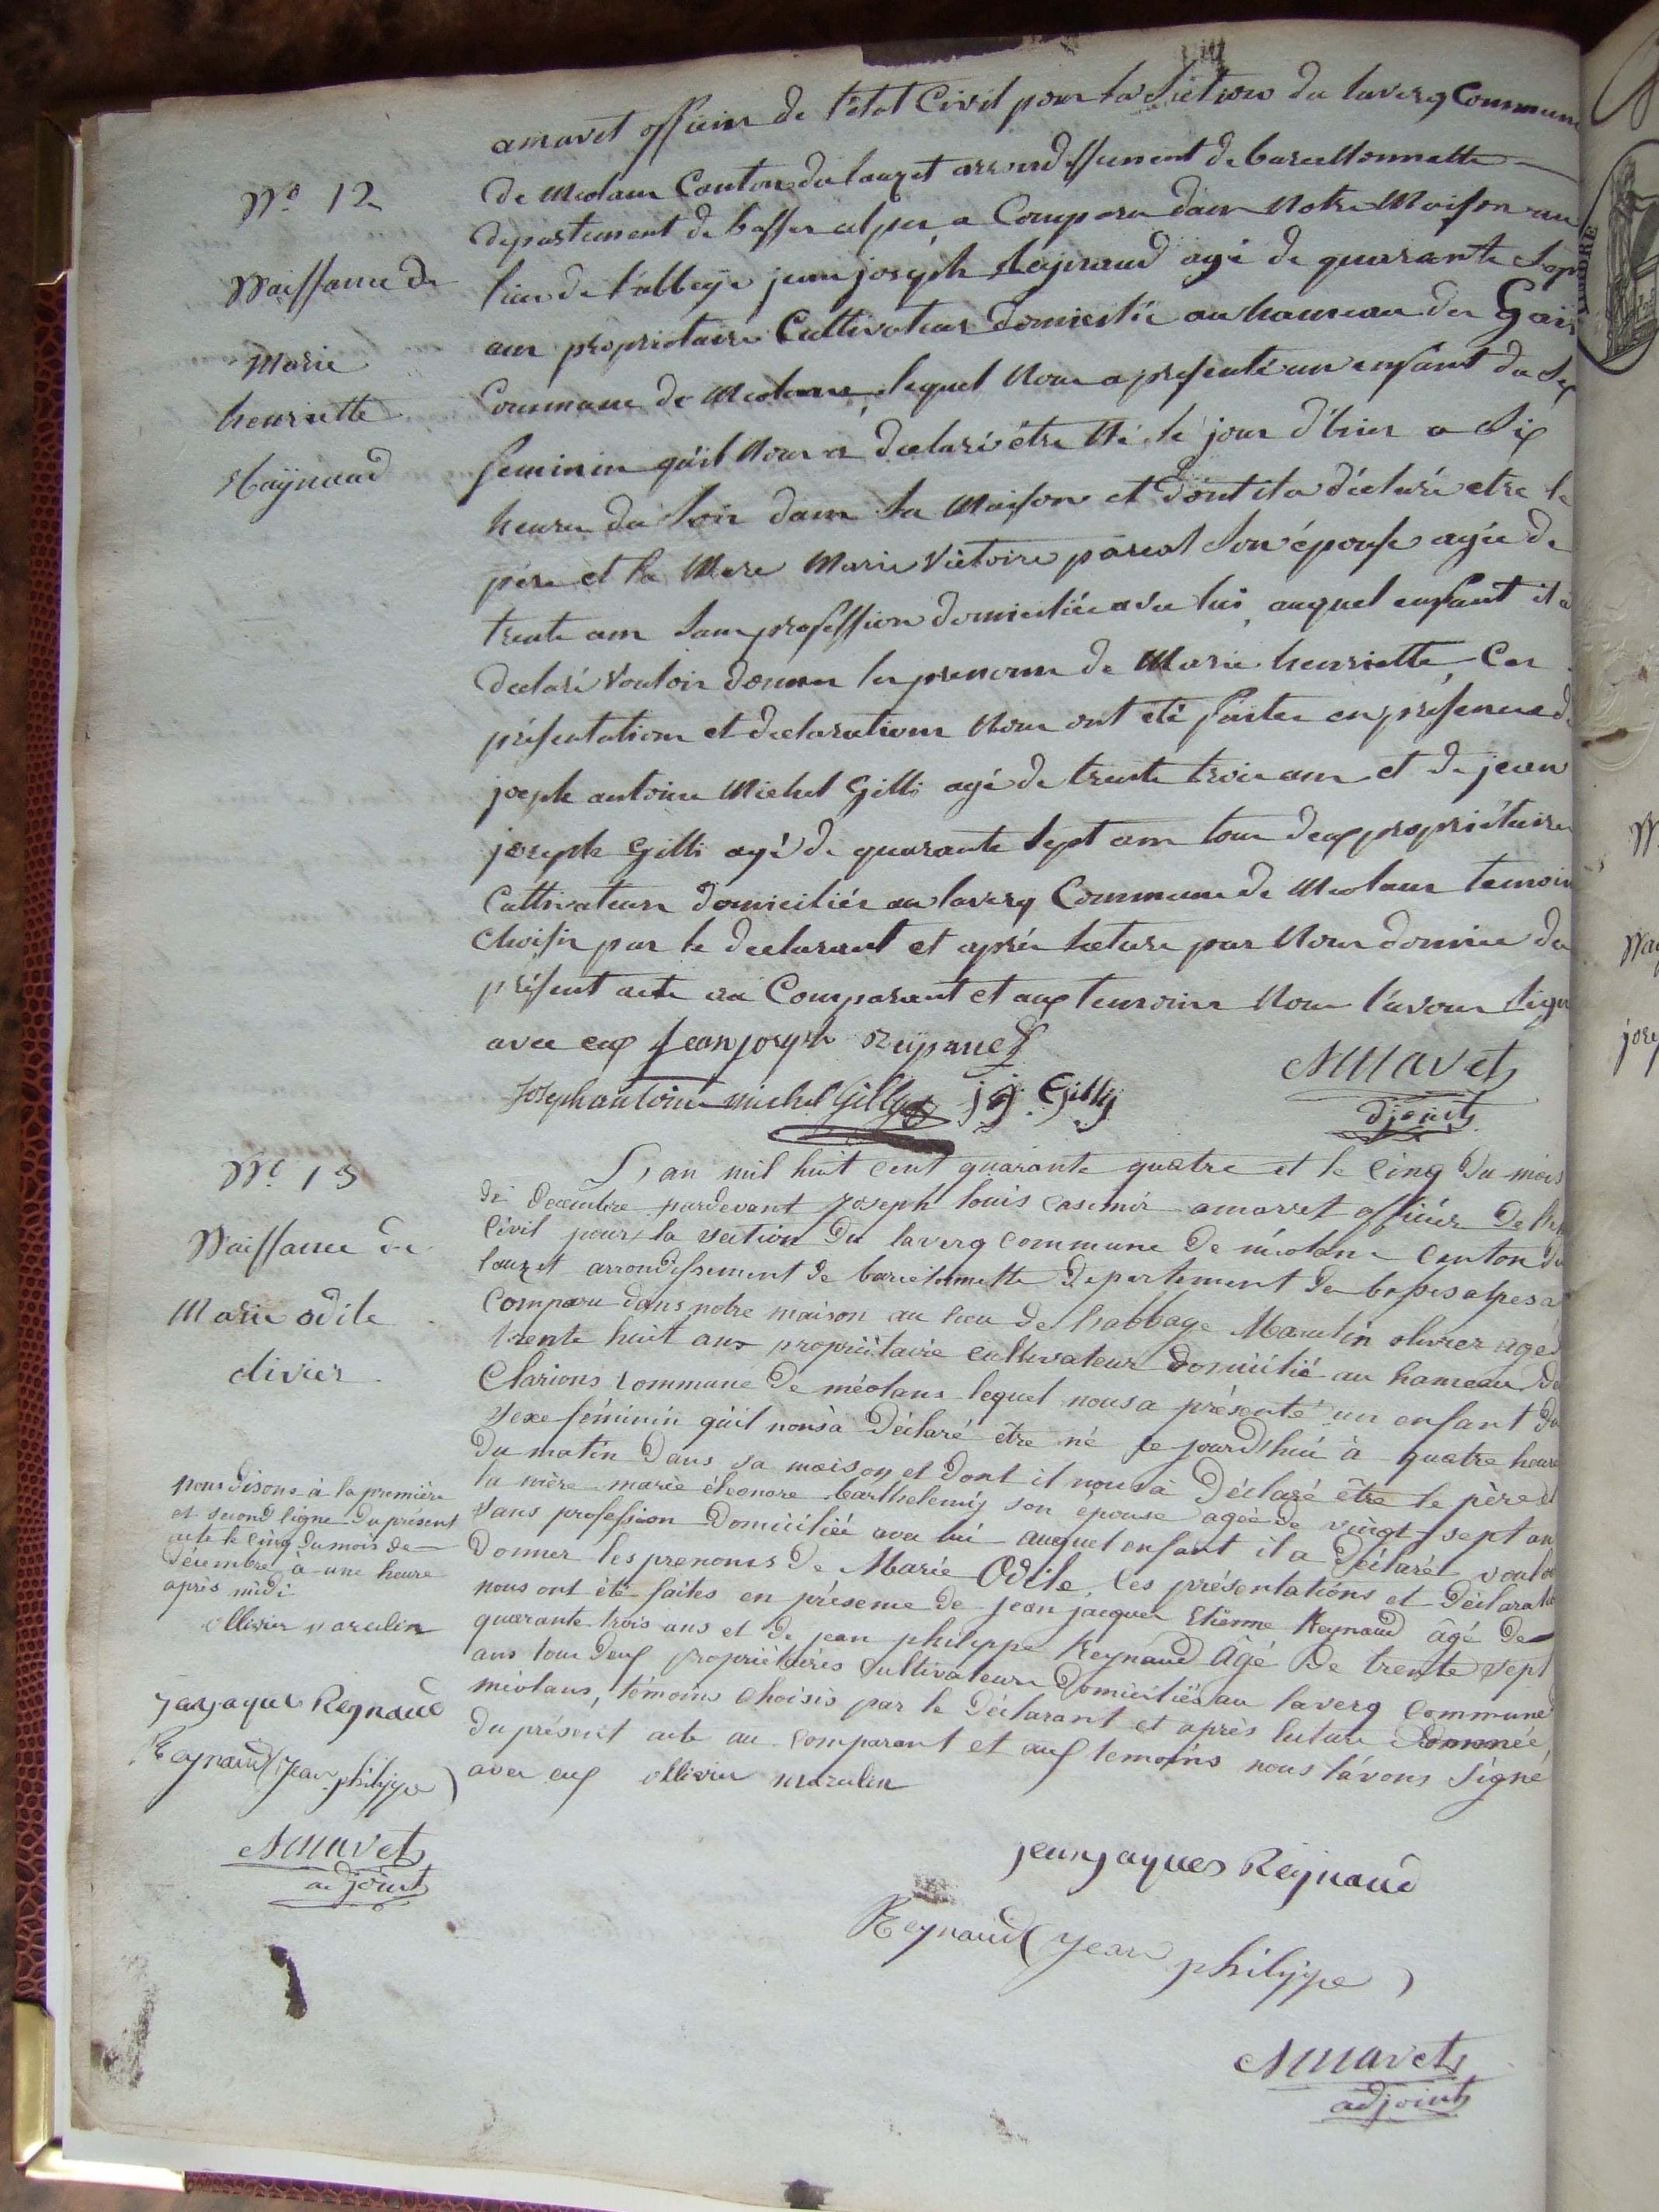 amavet officier de l'état Civil pour la Section du laverq Commune
de Meolans Canton du lauzet arrondissement de barcelonnette
departement de basses alpes, a Comparu dans Notre Maison au
lieu de l'abbeÿe jean joseph Reÿnaud agé de quarante Sept
ans propriétaire Cultivateur domicilié au hameau des Gais
Commune de Meolans, lequel Nous a présenté un enfant du Sex
feminin qu'il Nous a déclaré être Né le jour d'hier a Six
heures du Soir dans Sa Maison et dont il a déclaré etre le
père et la Mere Marie Victoire Son épouse agée de
trente ans Sans profession domiciliée avec lui, auquel enfant il a
declaré Vouloir donner les prenoms de Marie henriette, Ces
présentations et declarations Nous ont été faites en présence de
joseph antoine Michel Gilli agé de trente trois ans et de jean
joseph Gilli agé de quarante Sept ans tous deux propriétaires
Cultivateurs domiciliés au laverq Commune de Meolans temoins
Choisis par le declarant et après lecture par Nous donnée du
présent acte au Comparant et aux temoins Nous l'avons Signé
avec eux jean joseph Reÿnaud
Joseph antoine michel Gilly j j. Gilly
Amavet
adjoint
No 12
Naissance de
Marie
henriette
Raÿnaud
L'an mil huit cent quarante quatre et le cinq du mois
de decembre pardevant Joseph louis casimir amavet officier de l'état
civil pour la section du laverq commune de méolans canton du
lauzet arrondissement de barcelonnette departement des basses alpes a
comparu dans notre maison au lieu de l'abbaye Marulin olivier agé de
trente huit ans propriétaire cultivateur domicilié au hameau des
Clarions commune de méolans lequel nous a présenté un enfant du
sexe féminin qu'il nous a déclaré être né ce jourd'hui à quatre heures
du matin dans sa maison et dont il nous a déclaré être le père et
la mère marie éléonore barthelemÿ son épouse agée de vingt-sept ans
sans profession domiciliée avec lui auquel enfant il a déclaré vouloir
donner les prenoms de Marie Odile, ces présentations et déclarations
nous ont été faites en présence de jean jacques Etienne Reynaud âgé de
quarante trois ans et de jean philippe Reynaud âgé de trente sept
ans tous deux propriétaires cultivateurs domiciliés au laverq commune
méolans, témoins choisis par le déclarant et après lecture donnée
du présent acte au comparant et aux temoins nous l'avons signé
avec eux ollivier marulin
No 13
Naissance de
Marie odile
olivier
nous disons à la première
et second ligne du présent
acte le cinq du mois de
décembre à une heure
après midi
ollivier marulin
Janjaques Reynaud
Reynaud (jean philippe)
Amavet
adjoint
jean jaques Reynaud
Reynaud (jean philippe)
Amavet
adjoint